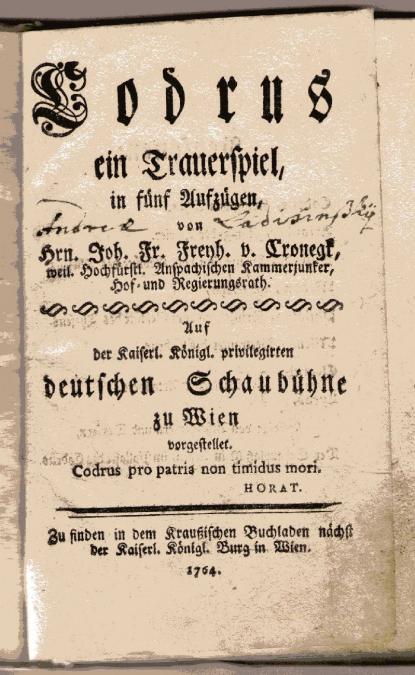 Codrus
ein Trauerspiel,
in fünf Aufzügen,
von
Hrn. Joh. Fr. Freyh. v. Cronegk,
weil. Hochfürstl. Anspachischen Kammerjunker,
Hof- und Regierungsrath.
Auf
der Kaiserl. Königl. privilegirten
deutschen Schaubühne
zu Wien
vorgestellet.
Codrus pro patria non timidus mori.
HORAT.
Zu finden in dem Kraußischen Buchladen nächst
der Kaiserl. Königl. Burg in Wien.
1764.